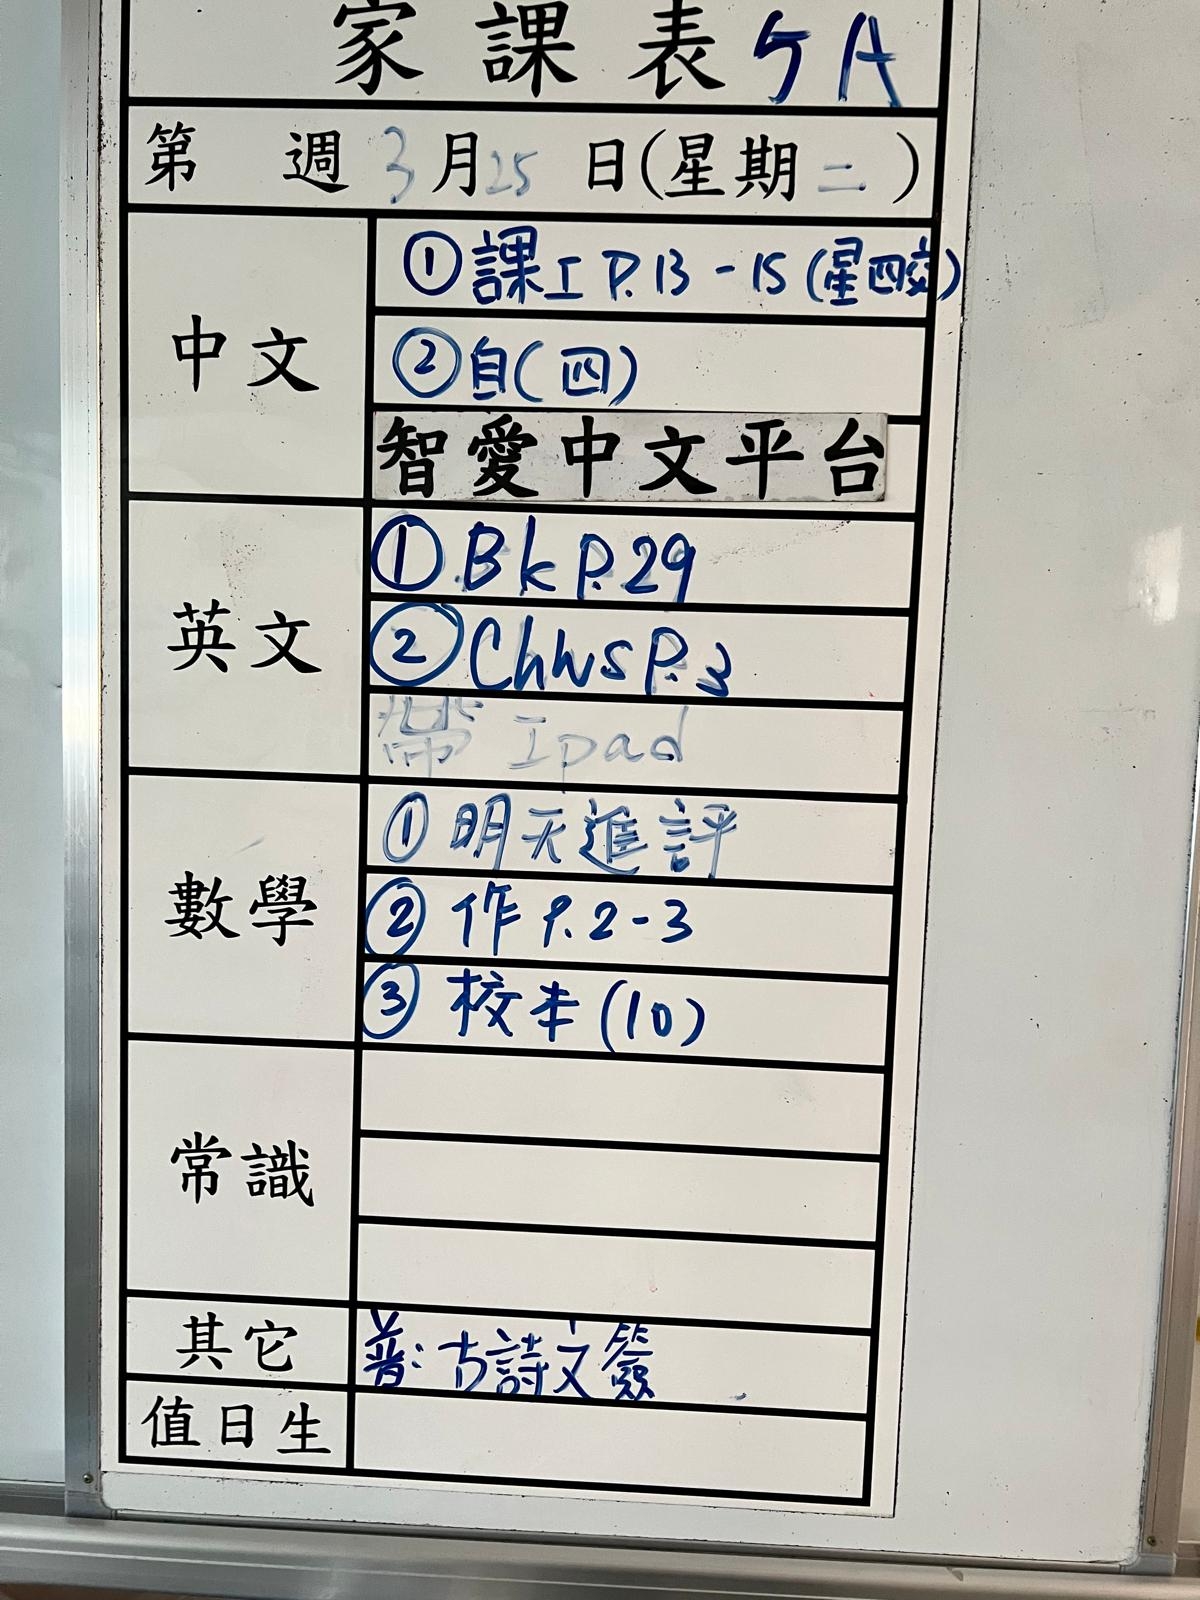 家課表 5A
第 週 3月25日(星期二)
中文
① 課工 P.13-15 (星四交)
② 自(四)
智愛中文平台
英文
① Bk P.29
② ChWS P.3
帶 Ipad
數學
① 明天進評
② 作 P.2-3
③ 校本(10)
常識
其它
普：古詩文簽
值日生